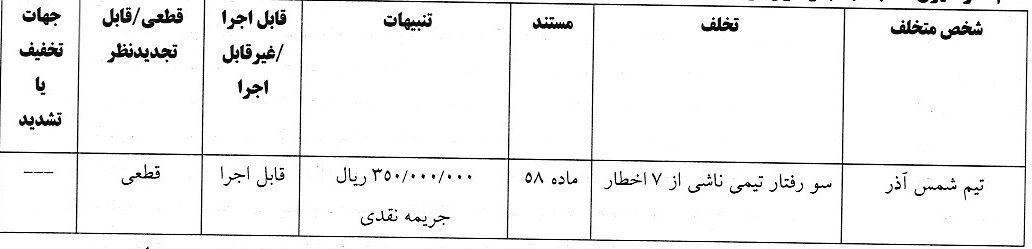 شخص متخلف
تخلف
مستند
تنبیهات
قابل اجرا
/غیرقابل
اجرا
قطعی/قابل
تجدیدنظر
جهات
تخفیف
یا
تشدید
تیم شمس آذر
سو رفتار تیمی ناشی از ۷ اخطار
ماده ۵۸
۳۵۰/۰۰۰/۰۰۰ ریال
جریمه نقدی
قابل اجرا
قطعی
---